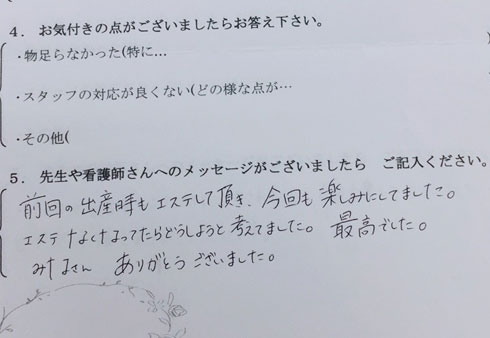 4. お気付きの点がございましたらお答え下さい。
・物足らなかった(特に…
)
・スタッフの対応が良くない(どの様な点が…
・その他(
5. 先生や看護師さんへのメッセージがございましたら ご記入ください。
前回の出産時もエステして頂き、今回も楽しみにしてました。
エステなくなってたらどうしようと考えてました。 最高でした。
みなさん ありがとうございました。